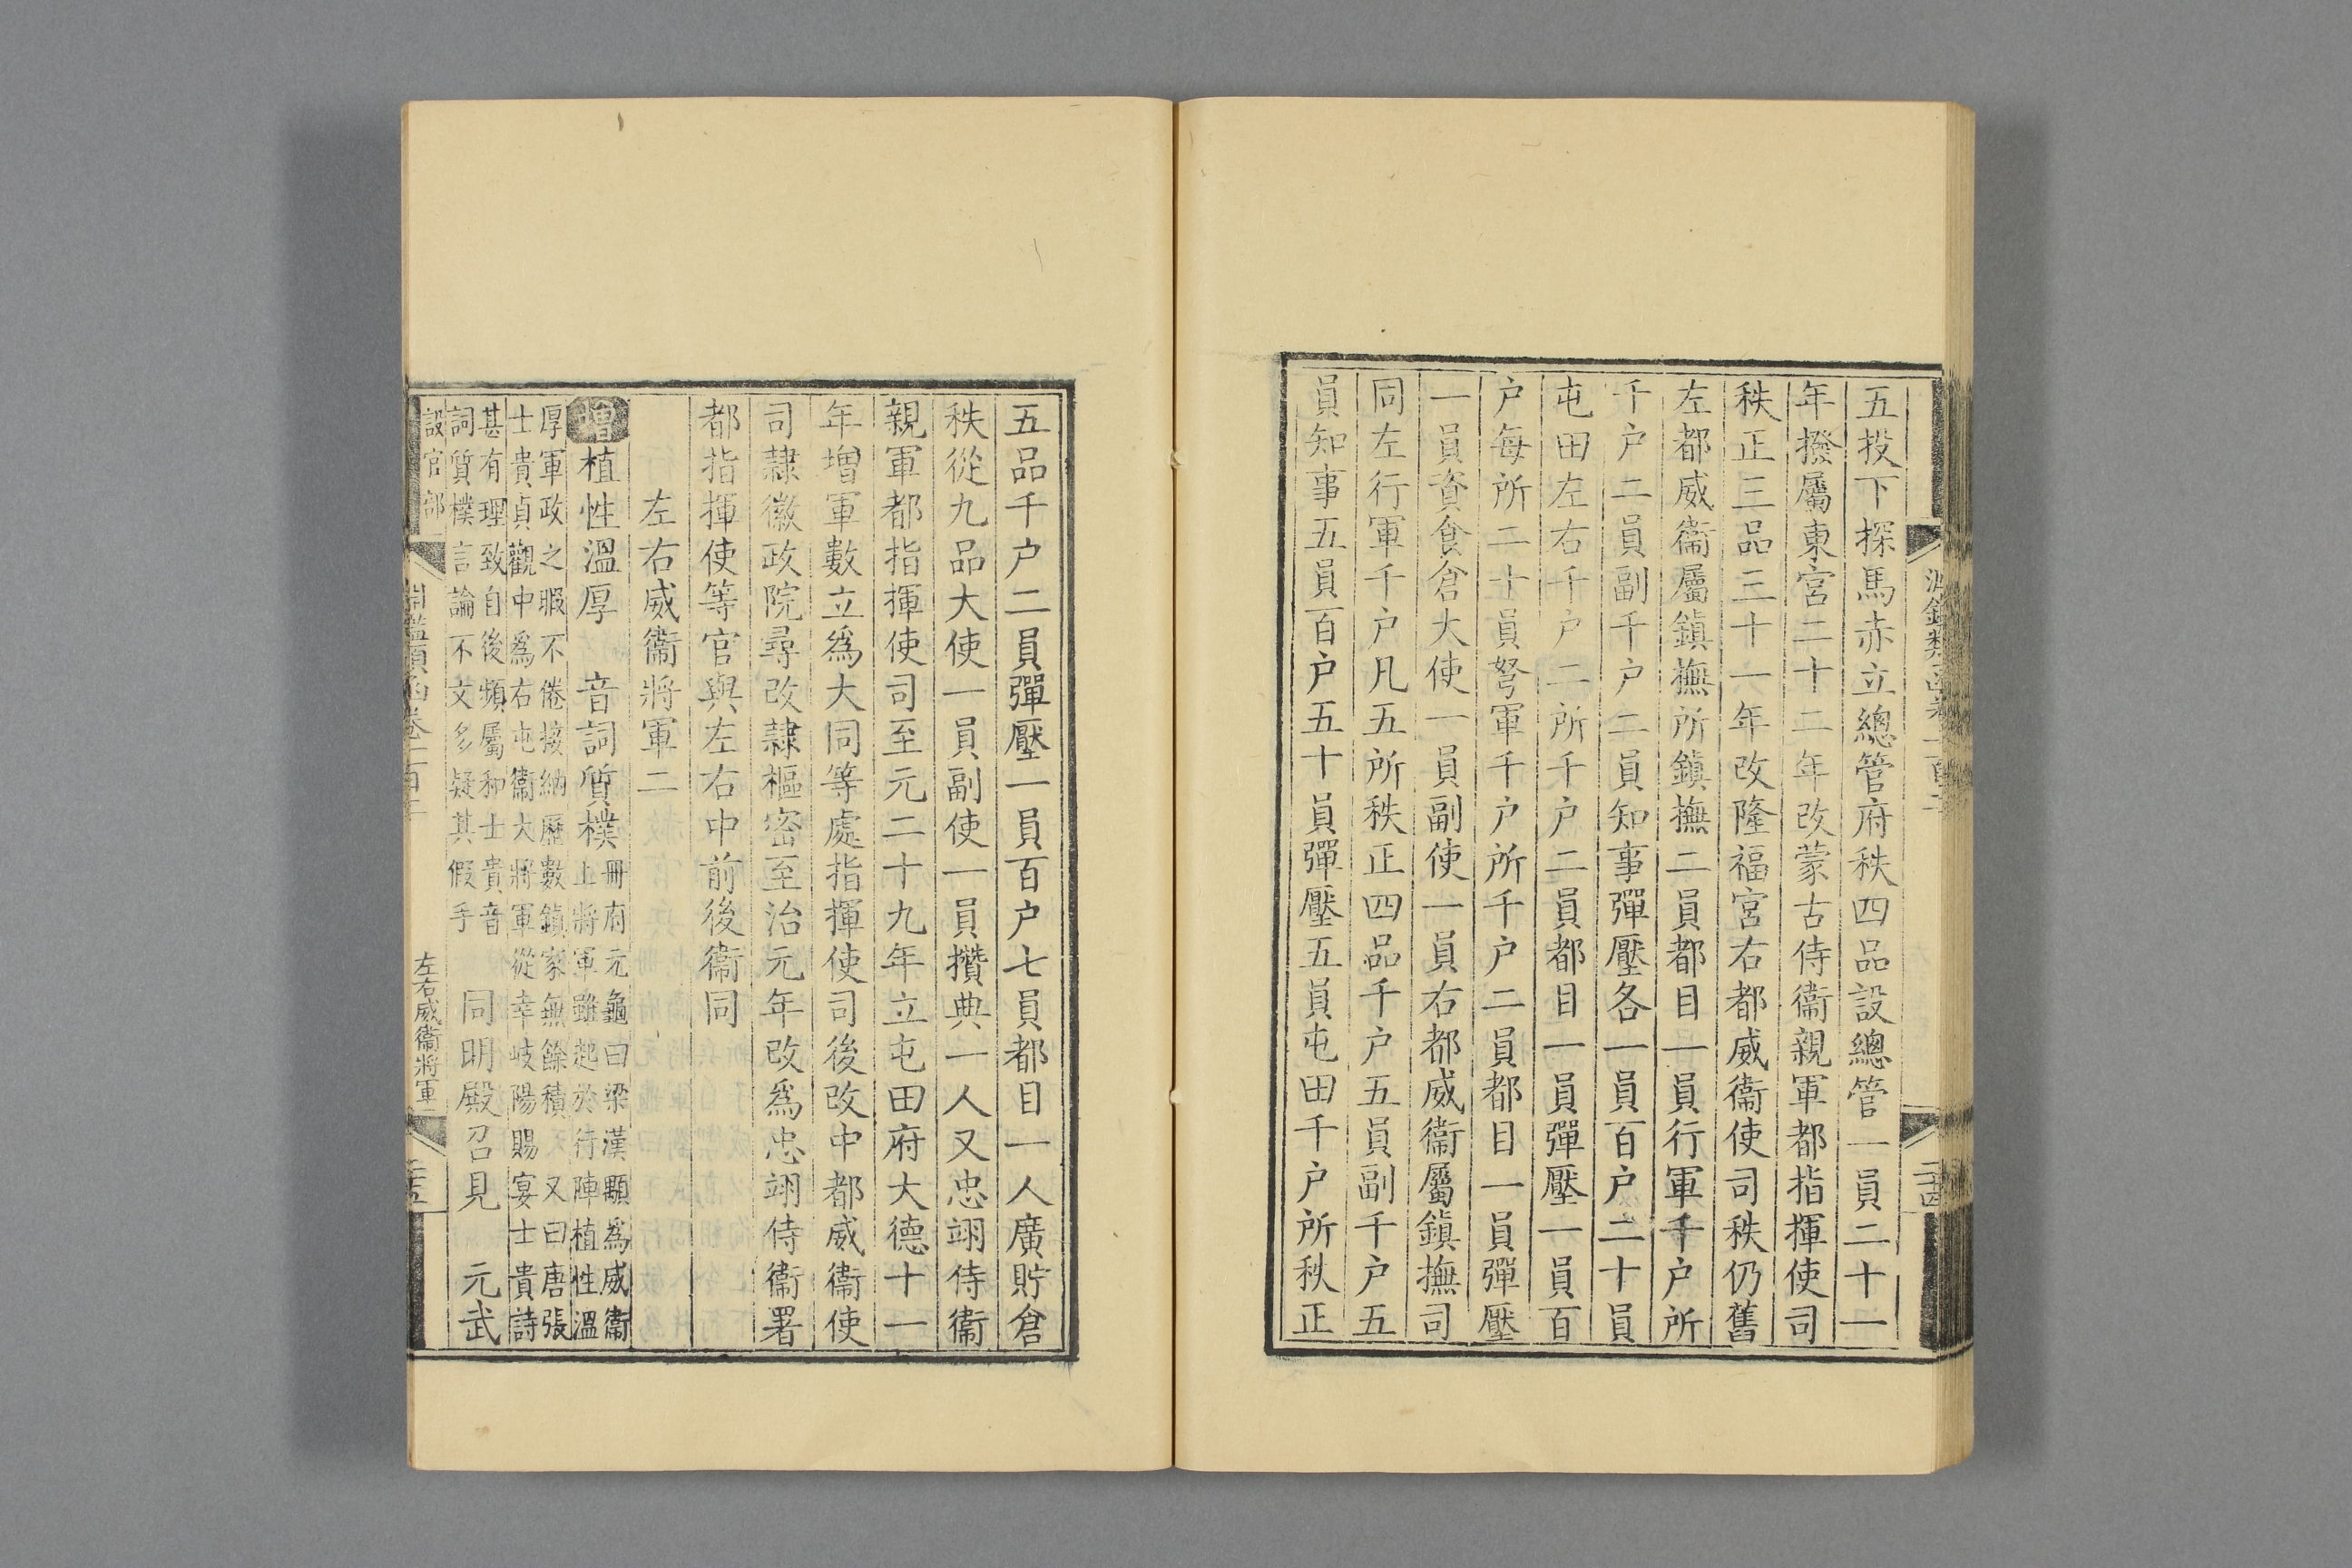 五投下探馬赤立總管府秩四品設總管一員二十一
年撥屬東宮二十二年改蒙古侍衞親軍都指揮使司
秩正三品三十一年改隆福宮右都威衞使司秩仍舊
左都威衞屬鎮撫所鎮撫二員都目一員行軍千户所
千户二員副千户二員知事彈壓各一員百户二十員
屯田左右千户二所千户二員都目一員彈壓一員百
户每所二十員弩軍千户所千户二員都目一員彈壓
一員資食倉大使一員副使一員右都威衞屬鎮撫司
同左行軍千户凡五所秩正四品千户五員副千户五
員知事五員百户五十員彈壓五員屯田千户所秩正
五品千户二員彈壓一員百户七員都目一人廣貯倉
秩從九品大使一員副使一員攢典一人又忠翊侍衞
親軍都指揮使司至元二十九年立屯田府大德十一
年增軍數立爲大同等處指揮使司後改中都威衞使
司隷徽政院尋改隷樞密至治元年改爲忠翊侍衞署
都指揮使等官與左右中前後衞同
左右威衞將軍二
增植性溫厚　音詞質樸 冊府元龜曰梁漢顒爲威衞
上將軍雖起於行陣植性溫
厚軍政之暇不倦接納歷數鎮家無餘積又曰唐張
士貴貞觀中爲右屯衞大將軍從幸岐陽賜宴士貴詩
甚有理致自後頻屬和士貴音
詞質樸言論不文多疑其假手 同明殿召見　元武
設官部
淵鑑類函卷一百十
左右威衞將軍一
二十五